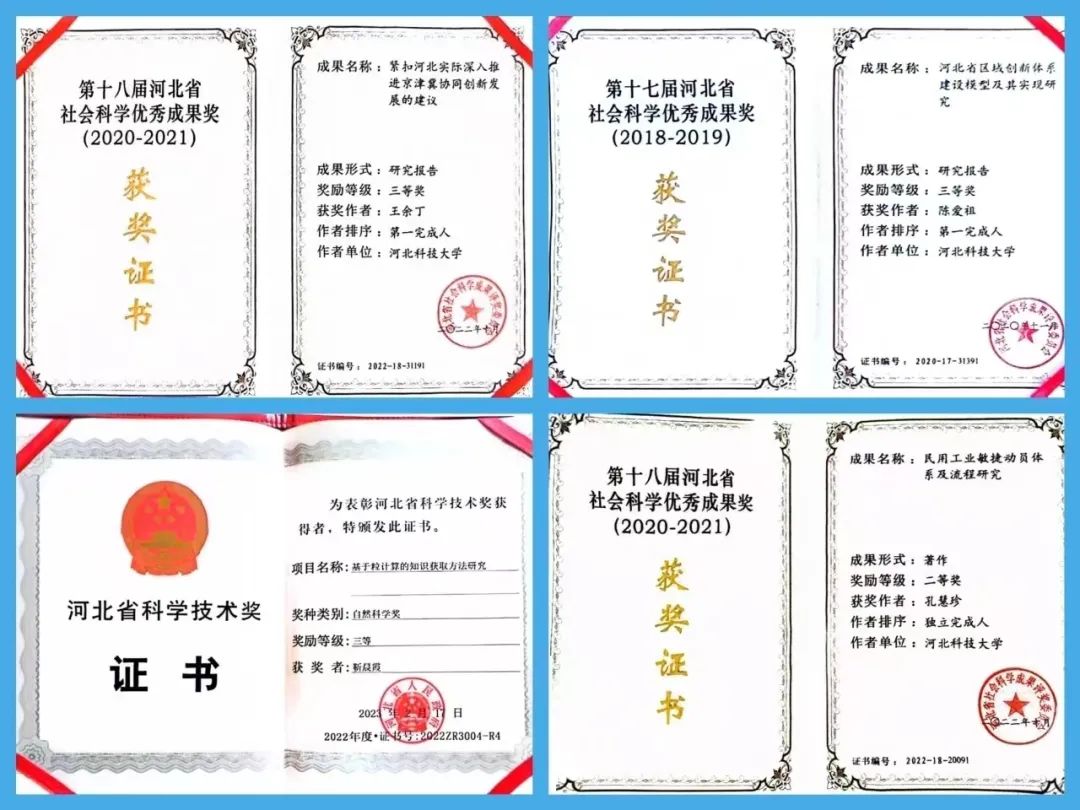 第十八届河北省
社会科学优秀成果奖
(2020-2021)
获
奖
证
书
成果名称：紧扣河北实际深入推
进京津冀协同创新发
展的建议
成果形式：研究报告
奖励等级：三等奖
获奖作者：王余丁
作者排序：第一完成人
作者单位：河北科技大学
二〇二二年十月
证书编号：2022-18-31191
第十七届河北省
社会科学优秀成果奖
(2018-2019)
获
奖
证
书
成果名称：河北省区域创新体系
建设模型及其实现研
究
成果形式：研究报告
奖励等级：三等奖
获奖作者：陈爱祖
作者排序：第一完成人
作者单位：河北科技大学
二〇二〇年十一月
证书编号：2020-17-31391
河北省科学技术奖
证 书
为表彰河北省科学技术奖获
得者，特颁发此证书。
项目名称：基于粒计算的知识获取方法研究
奖种类别：自然科学奖
奖励等级：三等
获 奖 者：靳晨霞
2023 年 2 月 17 日
2022年度·证书号:2022ZR3004-R4
第十八届河北省
社会科学优秀成果奖
(2020-2021)
获
奖
证
书
成果名称：民用工业敏捷动员体
系及流程研究
成果形式：著作
奖励等级：二等奖
获奖作者：孔慧珍
作者排序：独立完成人
作者单位：河北科技大学
二〇二二年十月
证书编号：2022-18-20091